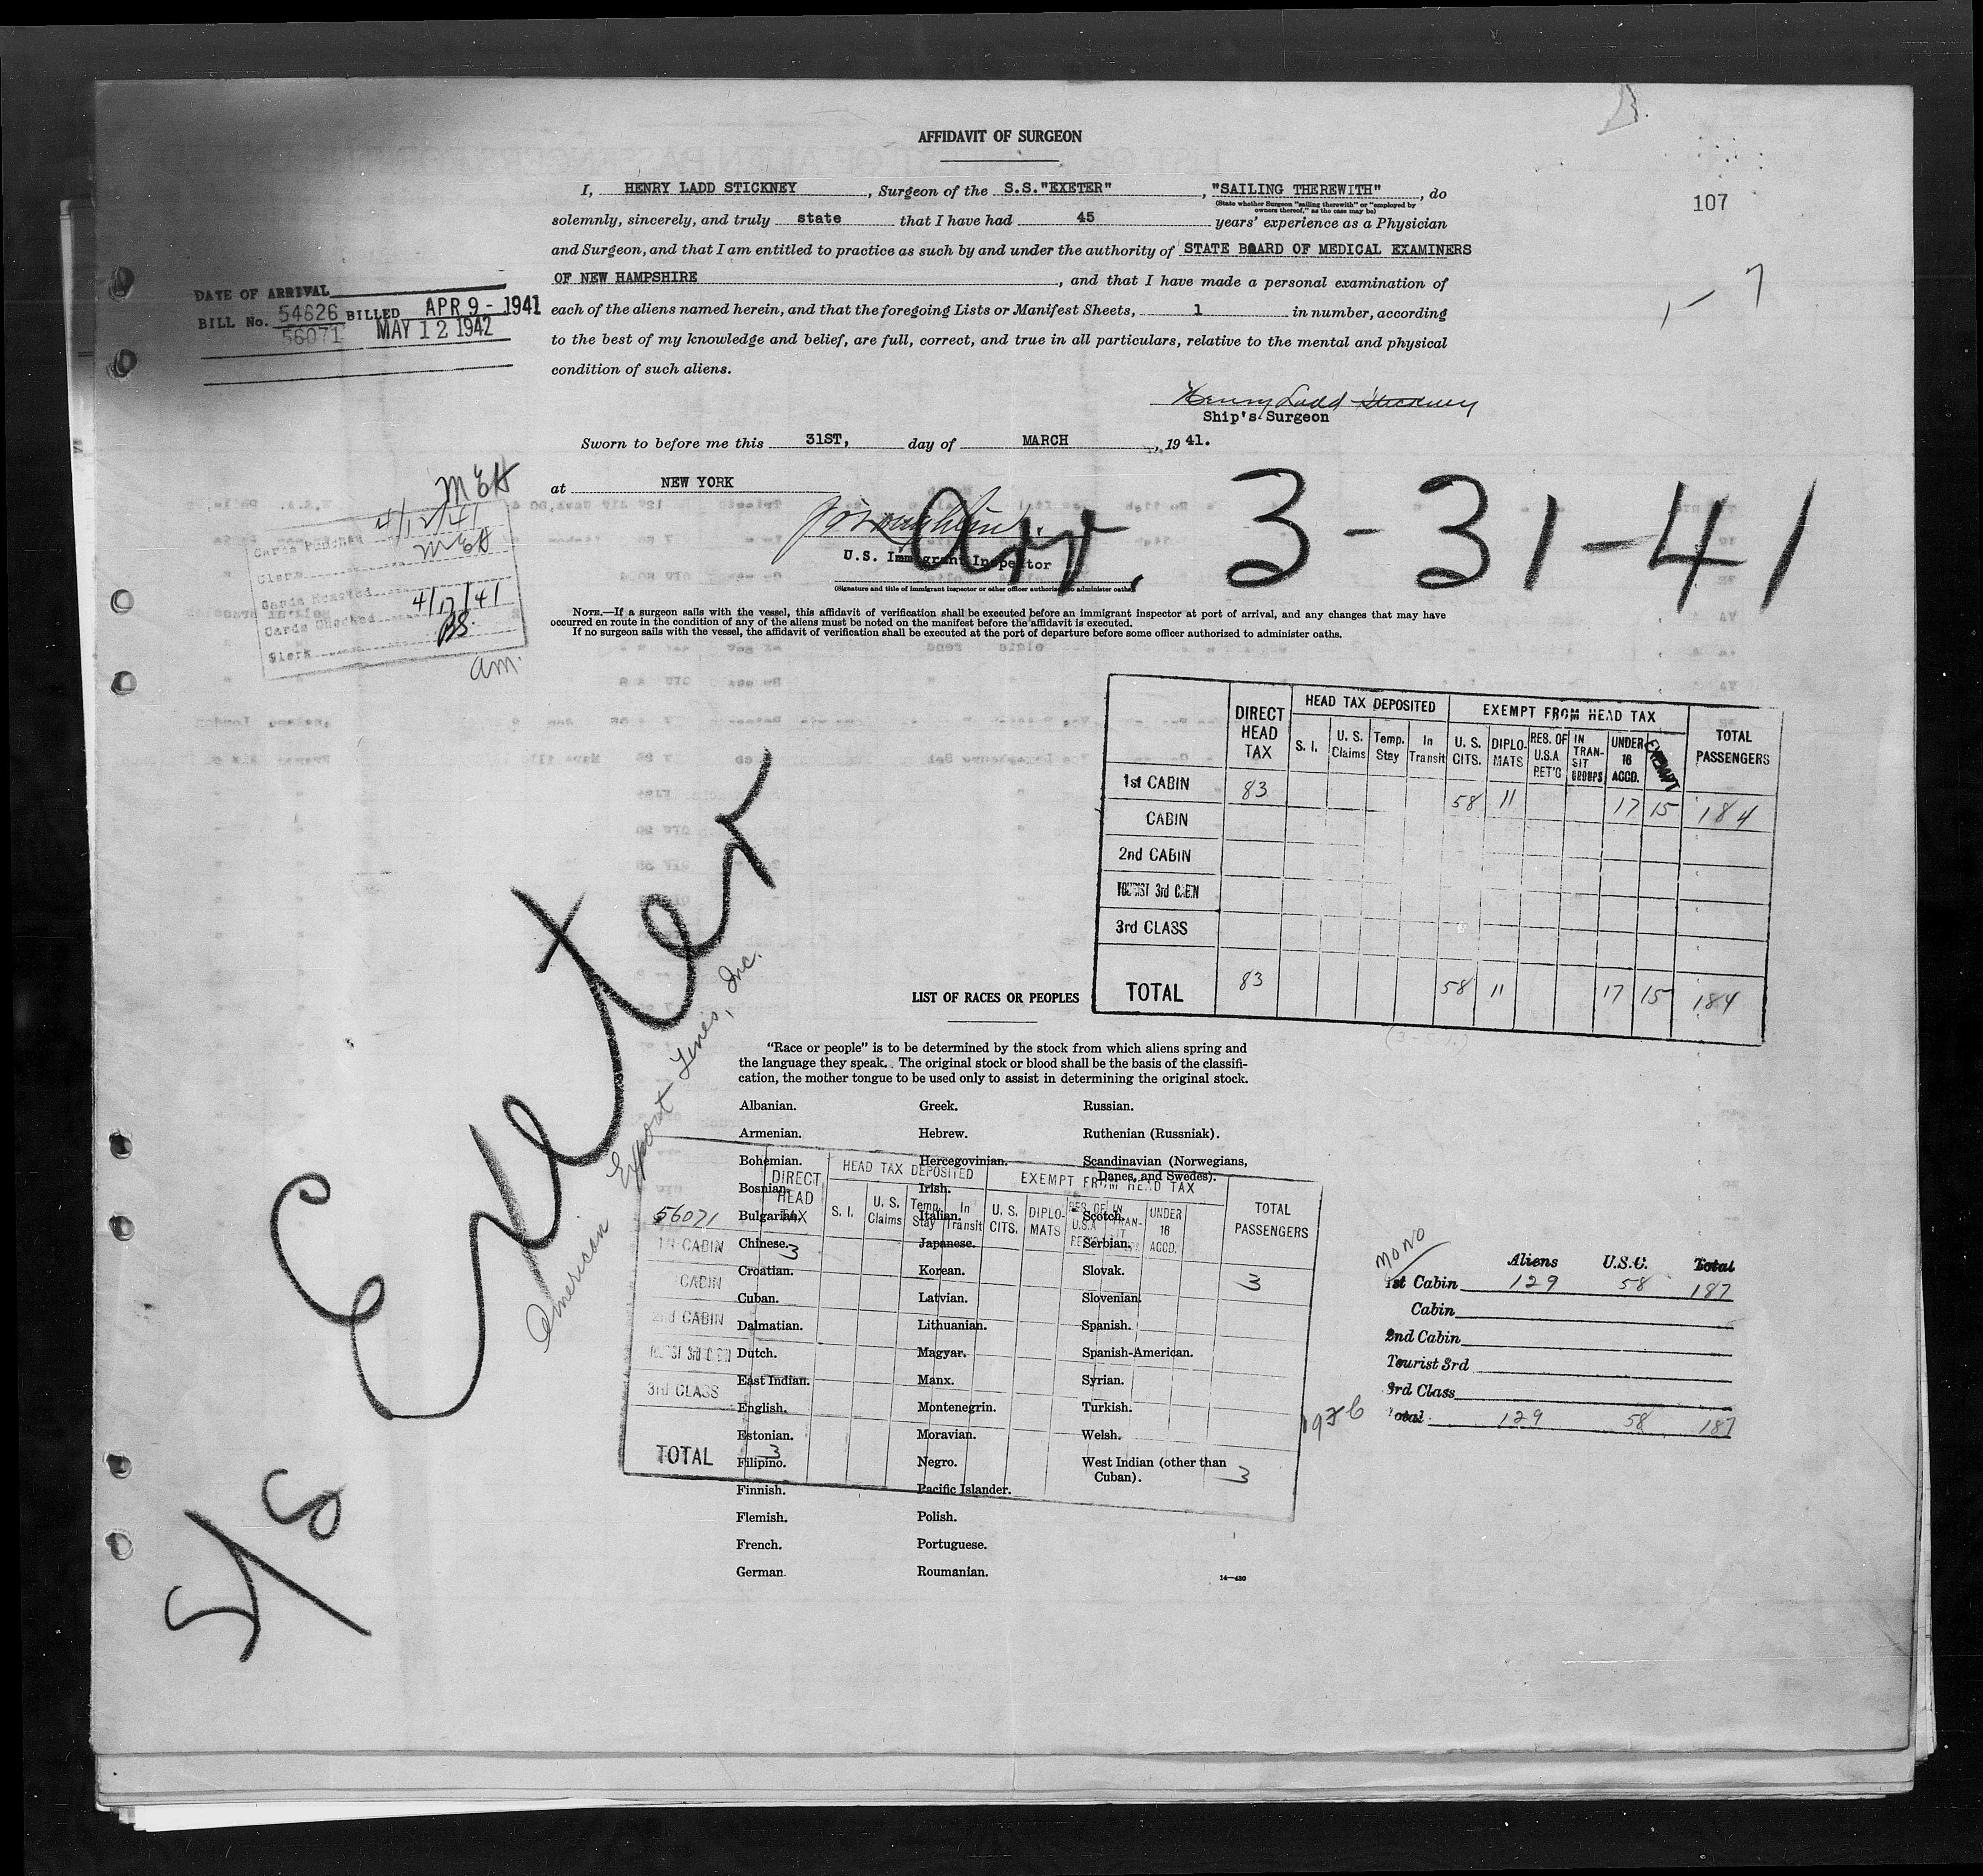 AFFIDAVIT OF SURGEON
107
I, HENRY LADD STICKNEY, Surgeon of the S.S."EXETER", "SAILING THEREWITH", do
(State whether Surgeon "sailing therewith" or "employed by owners thereof," as the case may be)
solemnly, sincerely, and truly state that I have had 45 years' experience as a Physician
and Surgeon, and that I am entitled to practice as such by and under the authority of STATE BOARD OF MEDICAL EXAMINERS
OF NEW HAMPSHIRE, and that I have made a personal examination of
each of the aliens named herein, and that the foregoing Lists or Manifest Sheets, 1 in number, according
to the best of my knowledge and belief, are full, correct, and true in all particulars, relative to the mental and physical
condition of such aliens.
DATE OF ARRIVAL
BILL No. 54626 BILLED APR 9 - 1941
56071 MAY 12 1942
Henry Ladd Stickney
Ship's Surgeon
Sworn to before me this 31ST, day of MARCH, 19 41.
at NEW YORK
U.S. Immigrant Inspector
(Signature and title of immigrant inspector or other officer authorized to administer oaths)
Arr. 3-31-41
MEH
Cards Punched 4/12/41
Clerk MEH
Cards Checked 4/17/41
Clerk BS.
am.
NOTE.—If a surgeon sails with the vessel, this affidavit of verification shall be executed before an immigrant inspector at port of arrival, and any changes that may have
occurred en route in the condition of any of the aliens must be noted on the manifest before the affidavit is executed.
If no surgeon sails with the vessel, the affidavit of verification shall be executed at the port of departure before some officer authorized to administer oaths.
DIRECT HEAD TAX
HEAD TAX DEPOSITED
EXEMPT FROM HEAD TAX
TOTAL PASSENGERS
S. I. U. S. Claims Temp. Stay In Transit U. S. CITS. DIPLOMATS RES. OF U.S.A RET'G IN TRANSIT GROUPS UNDER 16 ACCD. EXEMPT
1st CABIN 83 58 11 17 15 184
CABIN
2nd CABIN
TOURIST 3rd CABIN
3rd CLASS
TOTAL 83 58 11 17 15 184
S/S Exeter
American Export Lines, Inc.
LIST OF RACES OR PEOPLES
"Race or people" is to be determined by the stock from which aliens spring and
the language they speak. The original stock or blood shall be the basis of the classifi-
cation, the mother tongue to be used only to assist in determining the original stock.
Albanian. Greek. Russian.
Armenian. Hebrew. Ruthenian (Russniak).
Bohemian. Hercegovinian. Scandinavian (Norwegians,
Danes, and Swedes).
Bosnian. Irish.
Bulgarian. Italian. Scotch.
Chinese. Japanese. Serbian.
Croatian. Korean. Slovak.
Cuban. Latvian. Slovenian.
Dalmatian. Lithuanian. Spanish.
Dutch. Magyar. Spanish-American.
East Indian. Manx. Syrian.
English. Montenegrin. Turkish.
Estonian. Moravian. Welsh.
Filipino. Negro. West Indian (other than
Cuban).
Finnish. Pacific Islander.
Flemish. Polish.
French. Portuguese.
German. Roumanian.
14—430
DIRECT HEAD TAX
HEAD TAX DEPOSITED
EXEMPT FROM HEAD TAX
TOTAL PASSENGERS
S. I. U. S. Claims Temp. Stay In Transit U. S. CITS. DIPLOMATS RES. OF U.S.A RET'G IN TRANSIT UNDER 16 ACCD.
56071
1st CABIN 3 3
CABIN
2nd CABIN
TOURIST 3rd CABIN
3rd CLASS
TOTAL 3 3
mono
Aliens U.S.C. Total
1st Cabin 129 58 187
Cabin
2nd Cabin
Tourist 3rd
3rd Class
Total 129 58 187